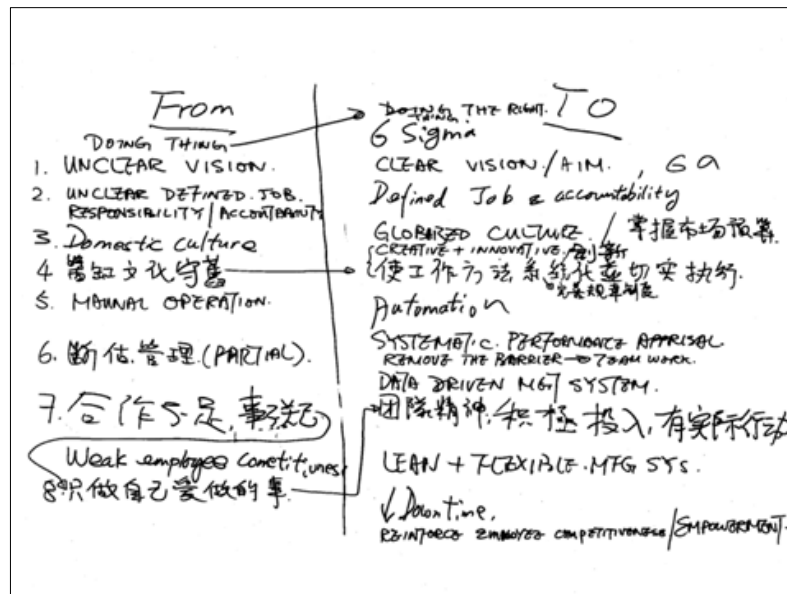 From
DOING THING
1. UNCLEAR VISION.
2. UNCLEAR DEFINED. JOB.
RESPONSIBILITY /
3. Domestic culture
4 文化守舊
5. MAUNAL OPERATION.
6. 管理.(PARTIAL).
7. 合作不足,
Weak employee
8. 只做自己爱做的事
TO
DOING THE RIGHT.
THING
6 Sigma
CLEAR VISION / AIM. , 6
Defined Job & accountability
GLOBARIZED CULTURE / 掌握市场预算.
CREATIVE + INNOVATIVE, 创新
使工作方法系统化並切实执行.
Automation
SYSTEMATIC. PERFORMANCE APPRISAL
REMOVE THE BARRIER → TEAM WORK.
DATA DRIVEN MGT SYSTEM.
团隊精神, 积極投入, 有实际行动
LEAN + FLEXIBLE. MFG SYS.
↓ Down time,
REINFORCE EMPLOYEE COMPETITIVENESS / EMPOWERMENT.